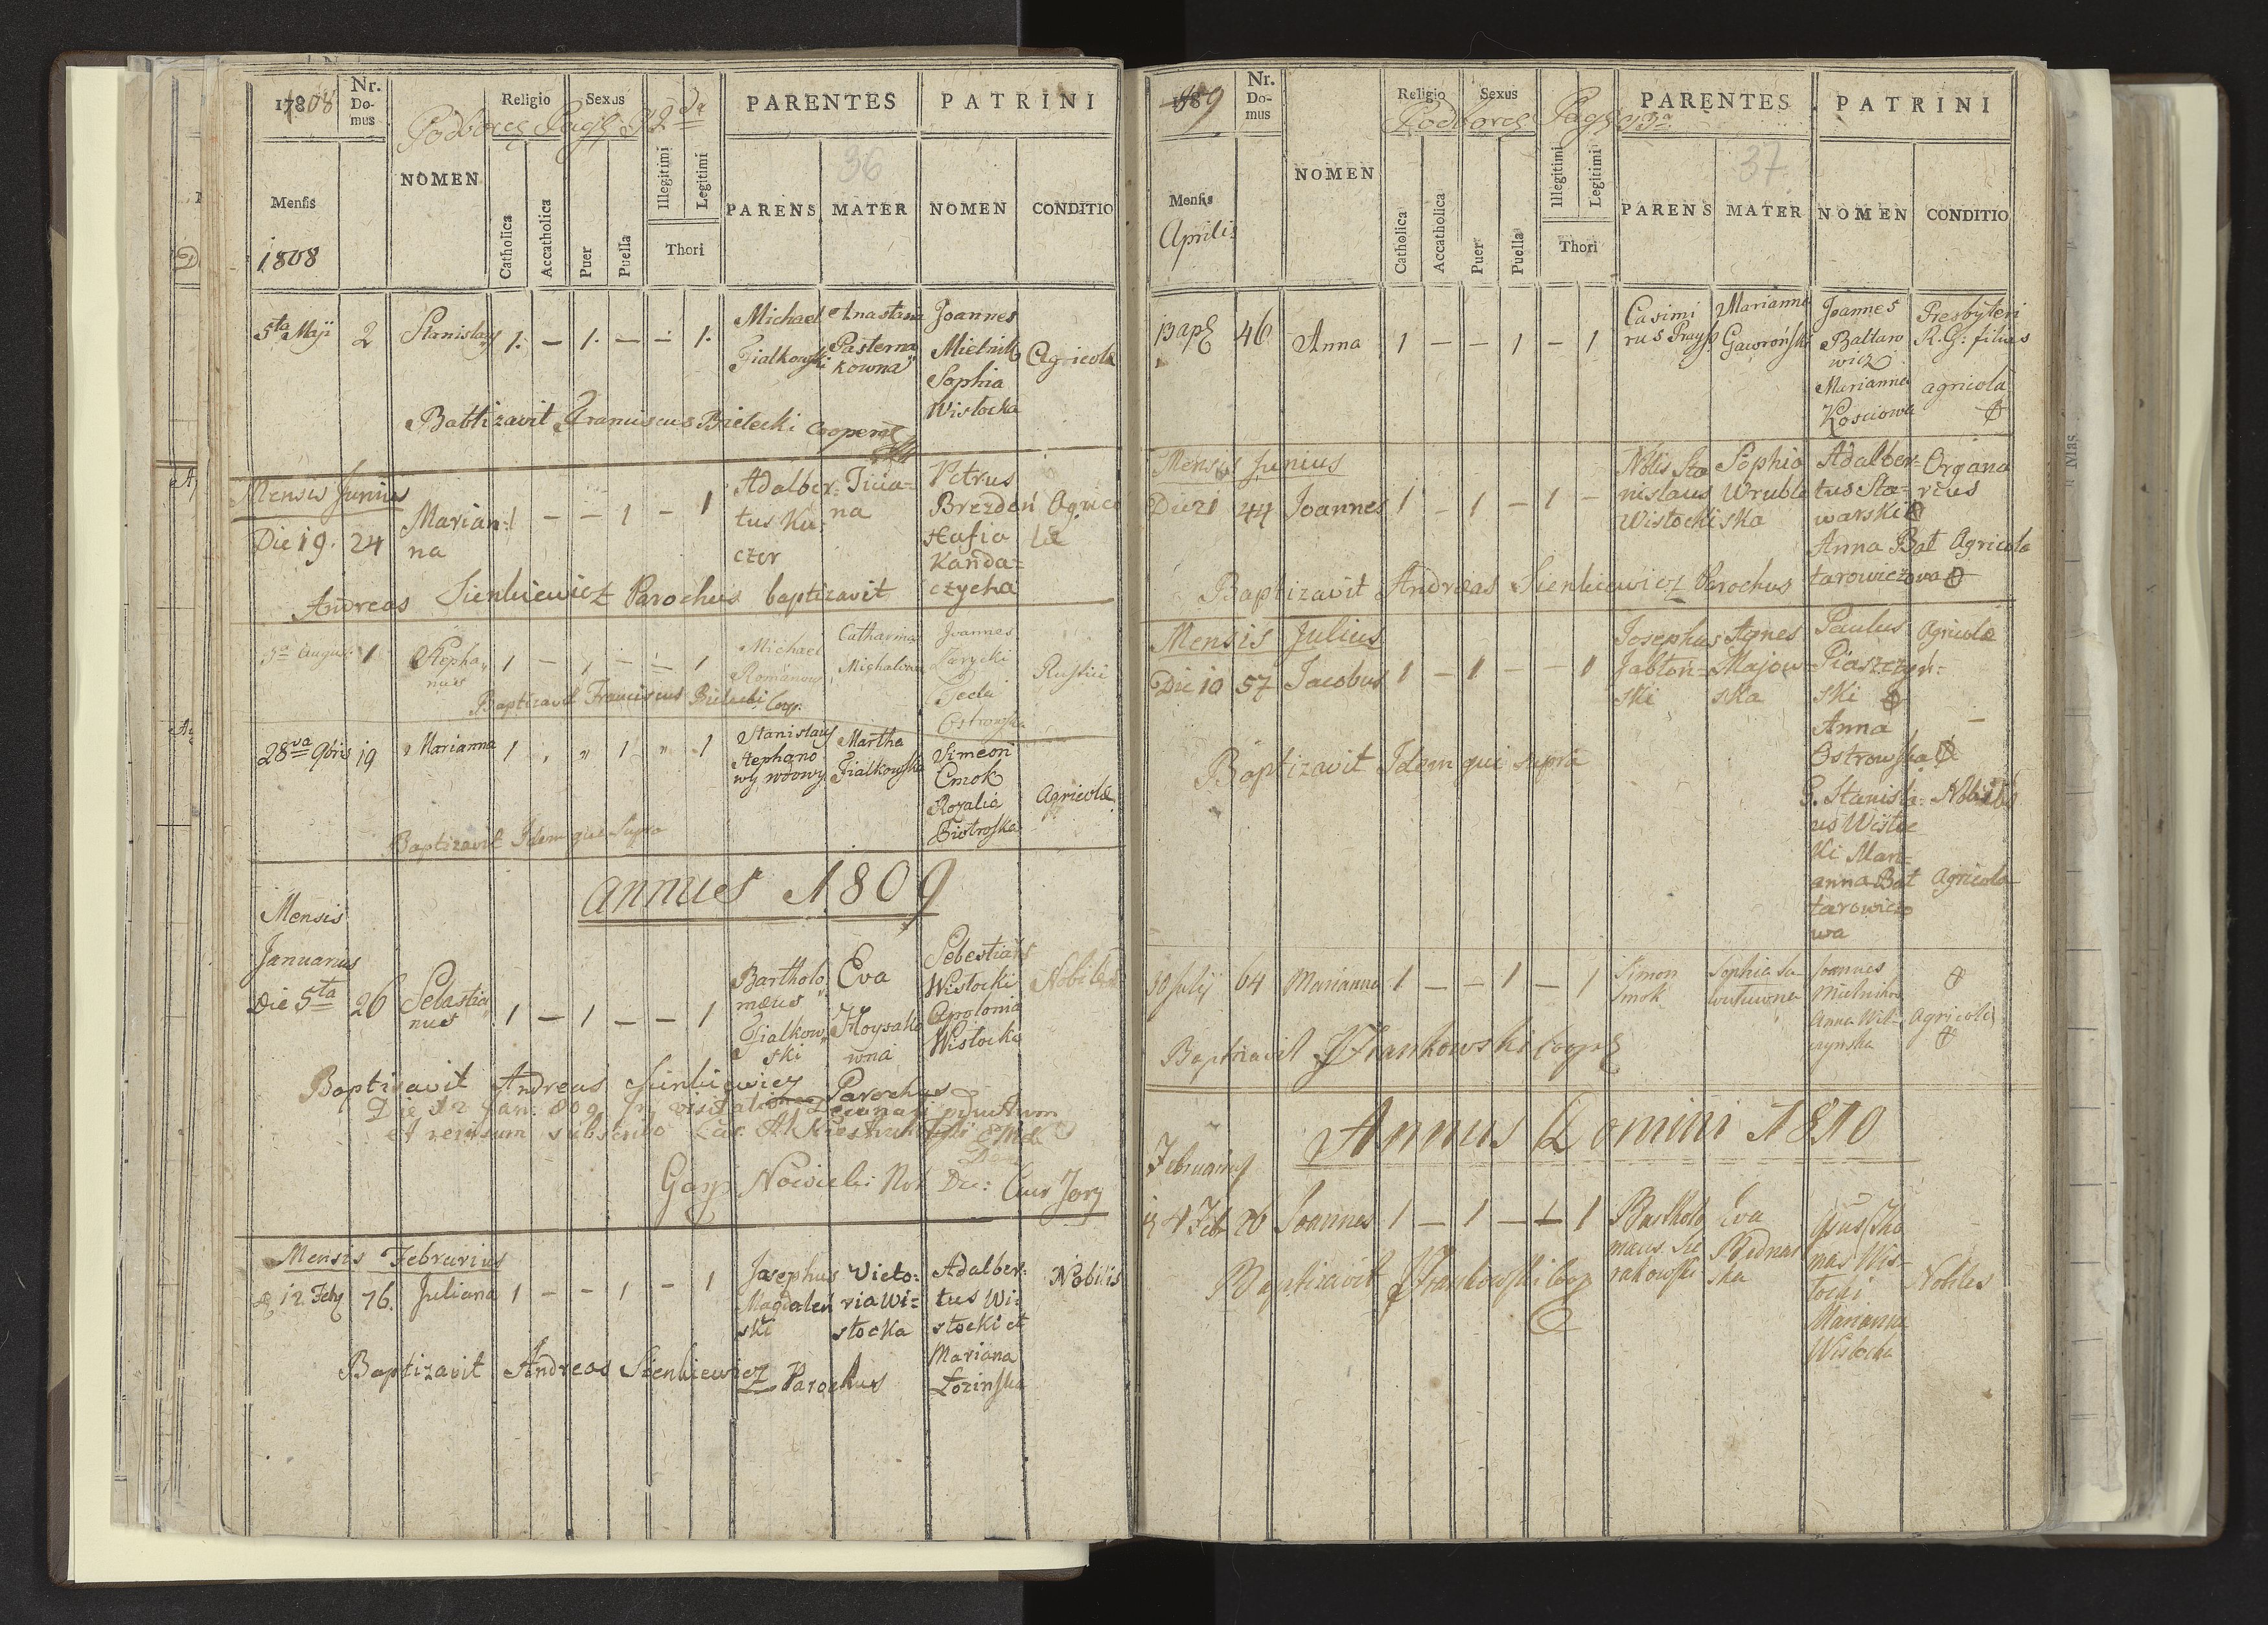 1808
Nr.
Do-
mus
Religio
Sexus
PARENTES
PATRINI
36
Mensis
1808
NOMEN
Catholica
Accatholica
Puer
Puella
Illegitimi
Legitimi
Thori
PARENS
MATER
NOMEN
CONDITIO
5ta Maji 2 Stanislaus 1. — 1. — — 1.
Michael
Fialkowski
Anastasia
Pasterna
kowna
Joannes
Mielnik
Sophia
Wisłocka
Agricola
Babtizavit Franciscus Bielecki Cooper
Mensis Junius
Die 19. 24 Marian-
na
1 — — 1 — 1
Adalber-
tus Ku-
czer
Ticia-
na
Petrus
Brezden
Hafia
Kanda-
czycha
Agrico
lae
Andreas Sienkiewicz Parochus baptizavit
August 1 Stepha-
nus
1 — 1 — — 1
Michael
Romanow
Catharina
Michalowna
Joannes
Zarycki
Tecla
Ostrowska
Rustici
Baptizavit Franciscus Bielecki Coop.
28va 9bris 19 Marianna 1 , " 1 " 1
Stanislaus
Stephano
wy wdowy
Martha
Fialkowska
Simeon
Cmok
Rosalia
Piotroska
Agricolae
Baptizavit Idem qui Supra
Annus 1809
Mensis
Januarius
Die 5ta 26 Sebastia
nus
1 — 1 — — 1
Bartholo
maeus
Fialkow
ski
Eva
Hoysako
wna
Sebestians
Wisłocki
Apolonia
Wisłocka
Nobiles
Baptizavit Andreas Sienkiewicz Parochus
Die 12 Jan: 809 In visitatione Decanali
et revisum subscribo
Nowicki Not Dec:
Mensis Februarius
12 Feb 76. Juliana 1 — — 1 — 1
Josephus
Magdaleń
ski
Victo-
ria Wi-
słocka
Adalber-
tus Wi-
słocki et
Mariana
Łozinska
Nobilis
Baptizavit Andreas Sienkiewicz Parochus
809
Nr.
Do-
mus
Religio
Sexus
PARENTES
PATRINI
37
Mensis
Aprilis
NOMEN
Catholica
Accatholica
Puer
Puella
Illegitimi
Legitimi
Thori
PARENS
MATER
NOMEN
CONDITIO
13 apr 46 Anna 1 — — 1 — 1
Casimi
rus
Marianna
Gawrońska
Joannes
Baltaro
wicz
Marianna
Kosciowa
Presbyteri
R. G: filius
agricola
Mensis Junius
Die 21 44 Joannes 1 — 1 — 1 —
Nblis Sta
nislaus
Wisłocki
Sophia
Wruble
ska
Adalber-
tus Sto-
warski
Anna Bał
tarowiczowa
Organa
rius
Agricola
Baptizavit Andreas Sienkiewicz Parochus
Mensis Julius
Die 10 57 Jacobus 1 — 1 — — 1
Josephus
Jabłoń-
ski
Agnes
Majow-
ska
Paulus
Piaszczyń-
ski
Anna
Ostrowska
G. Stanisla-
us Wisłoc
ki Mari-
anna Bał
tarowiczo
wa
Agricolae
Nobilis
Agricola
Baptizavit Idem qui supra
30 Julij 64 Marianna 1 — — 1 — 1
Simon
Smok
Sophia
Joannes
Mielnikow
Anna Wil-
czynska
Agricolae
Baptizavit J Frankowski Coopr
Annus Domini 1810
Februarius
4 Feb 26 Joannes 1 — 1 — — 1
Bartholo
maeus Sie
rakowski
Eva
Bednar
ska
Tho
mas Wis-
łocki
Marianna
Wisłocka
Nobiles
Baptizavit J Frankowski Coop